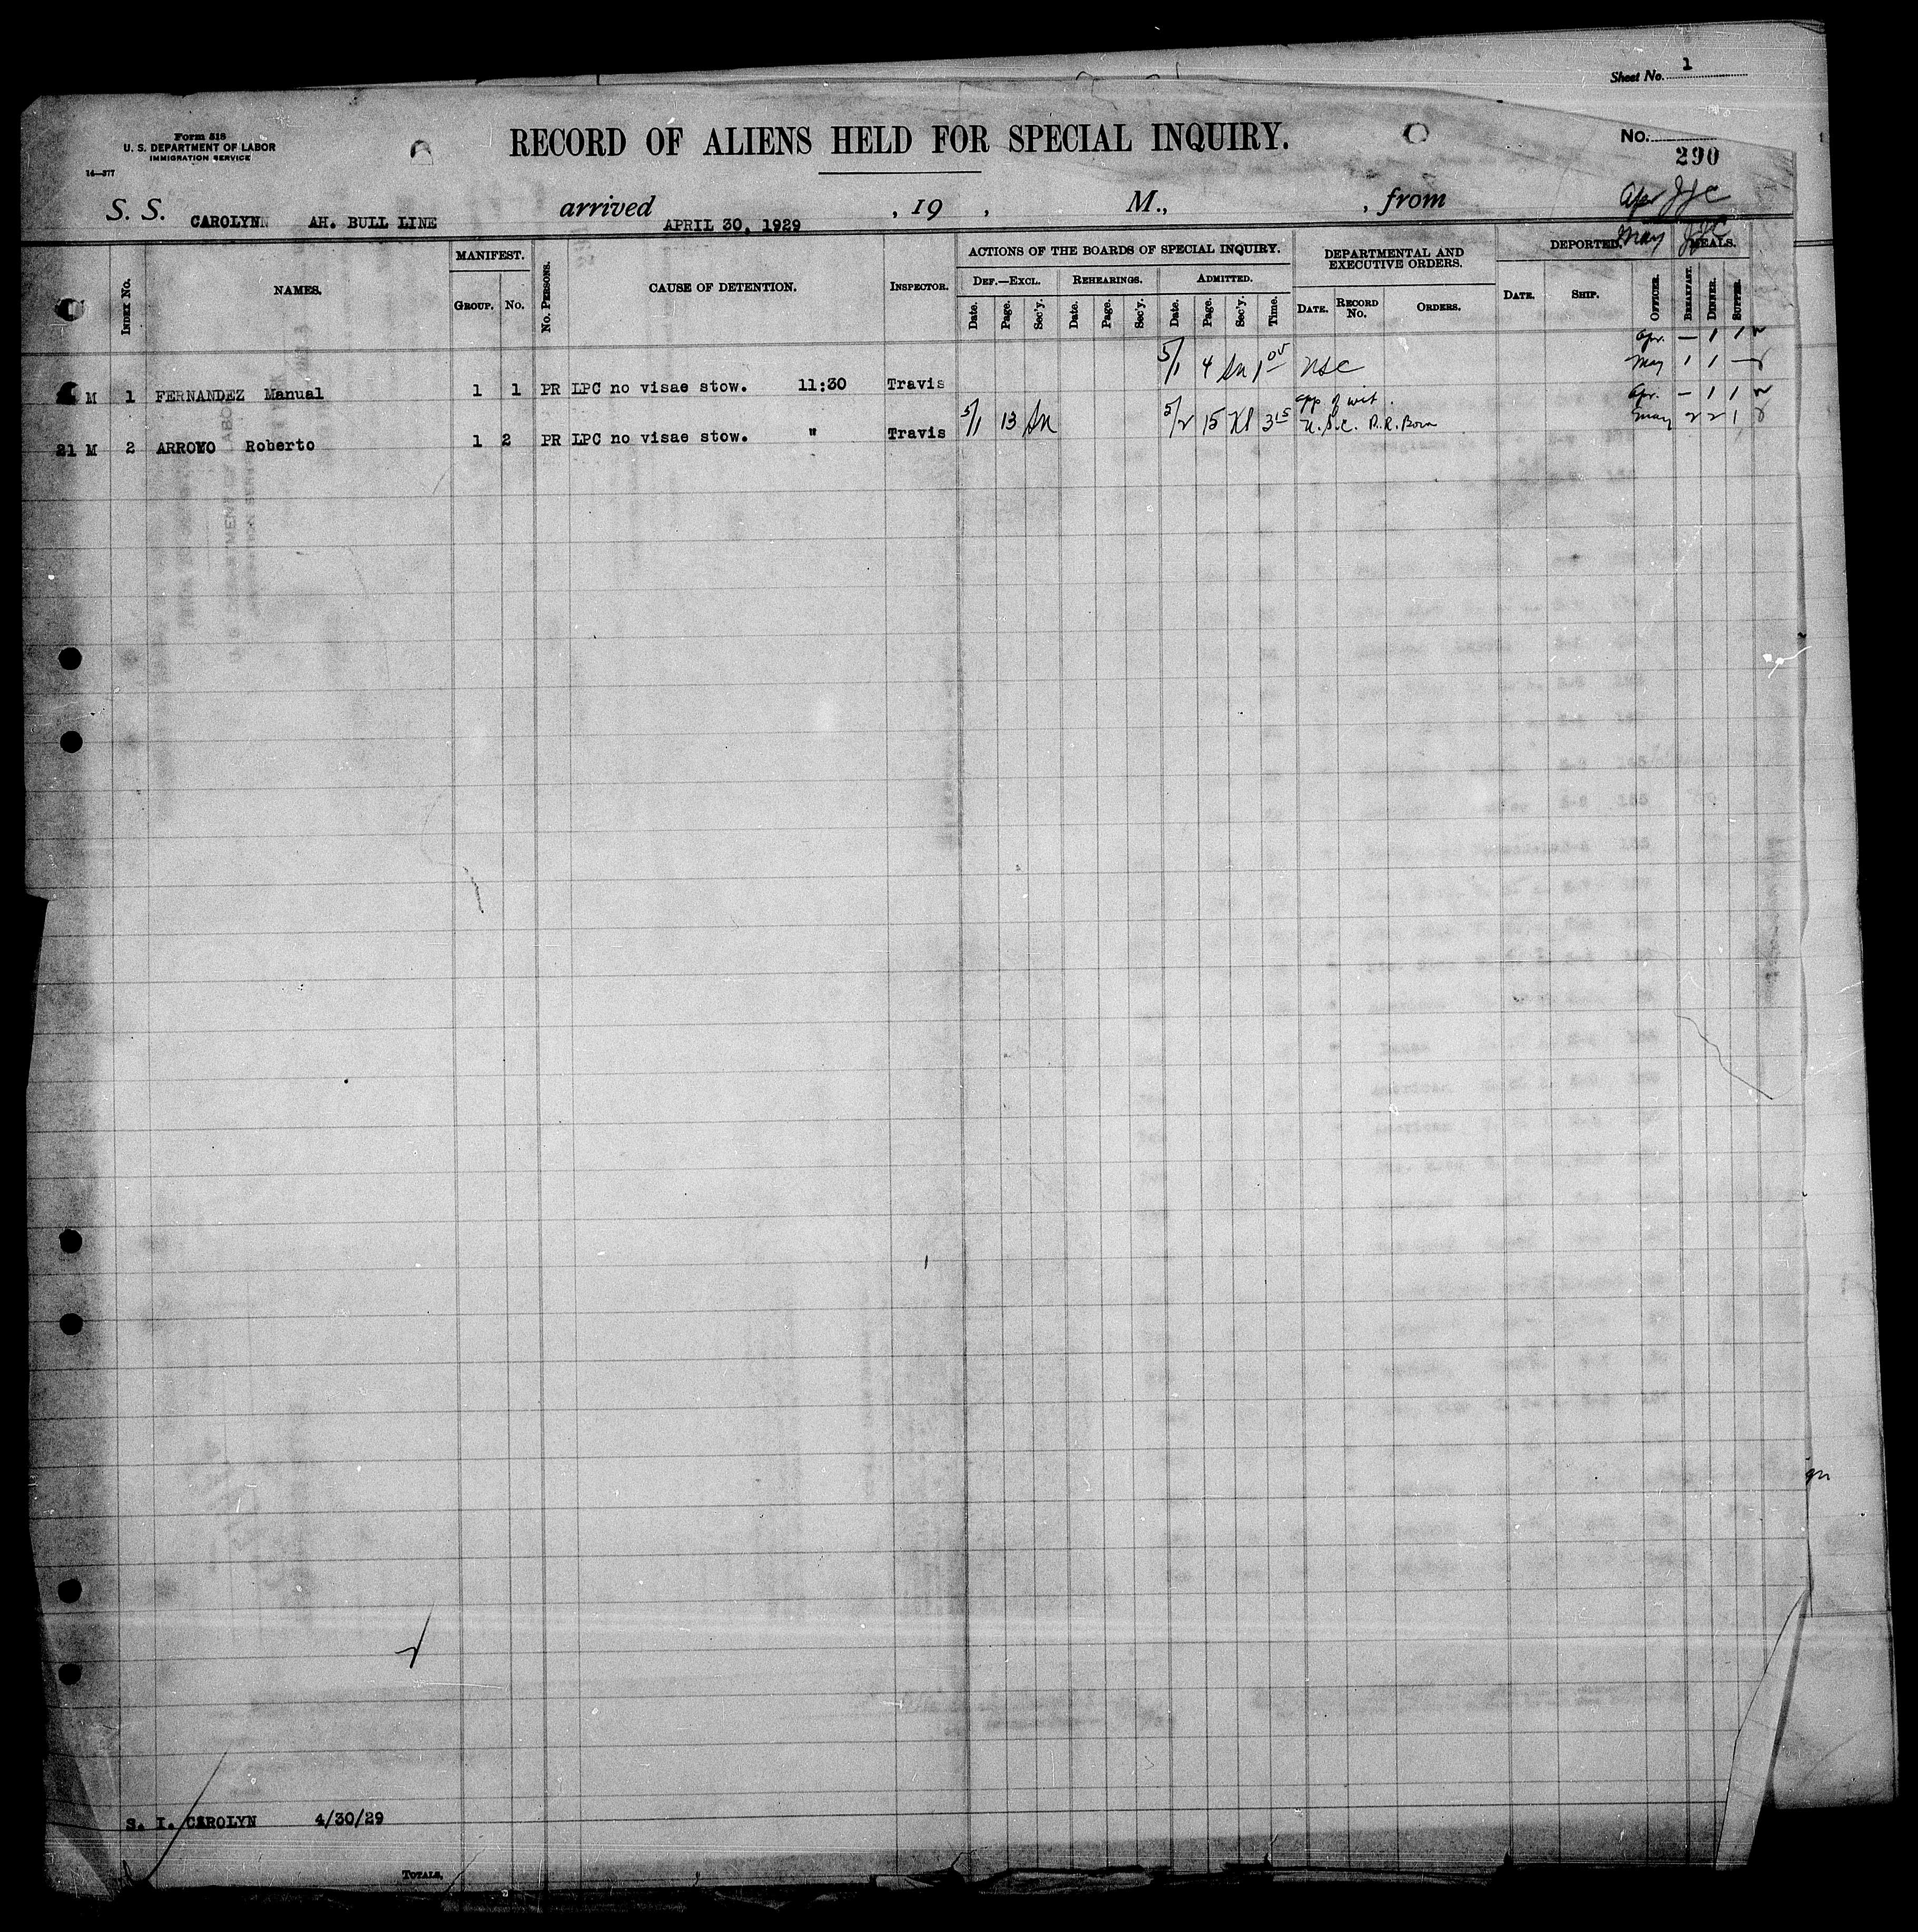 Sheet No. 1
Form 518
U. S. DEPARTMENT OF LABOR
IMMIGRATION SERVICE
14—377
RECORD OF ALIENS HELD FOR SPECIAL INQUIRY.
No.
290
S. S. CAROLYN AH. BULL LINE arrived APRIL 30, 1929 , 19 , M., , from
Apr JJC
May JJC
INDEX No.
NAMES.
MANIFEST.
GROUP. No.
No. PERSONS.
CAUSE OF DETENTION.
INSPECTOR.
ACTIONS OF THE BOARDS OF SPECIAL INQUIRY.
DEF.—EXCL. REHEARINGS. ADMITTED.
Date. Page. Sec'y. Date. Page. Sec'y. Date. Page. Sec'y. Time.
DEPARTMENTAL AND
EXECUTIVE ORDERS.
DATE. RECORD No. ORDERS.
DEPORTED.
DATE. SHIP. OFFICER.
MEALS.
BREAKFAST. DINNER. SUPPER.
Apr. — 1 1
5/1 4 1 00 USC May 1 1 —
M 1 FERNANDEZ Manual 1 1 PR LPC no visae stow. 11:30 Travis
app of wit. Apr. — 1 1
5/1 13 5/2 15 3 15 U.S.C. P.R. Born May 2 2 1
21 M 2 ARROYO Roberto 1 2 PR LPC no visae stow. " Travis
S. I. CAROLYN 4/30/29
TOTALS.